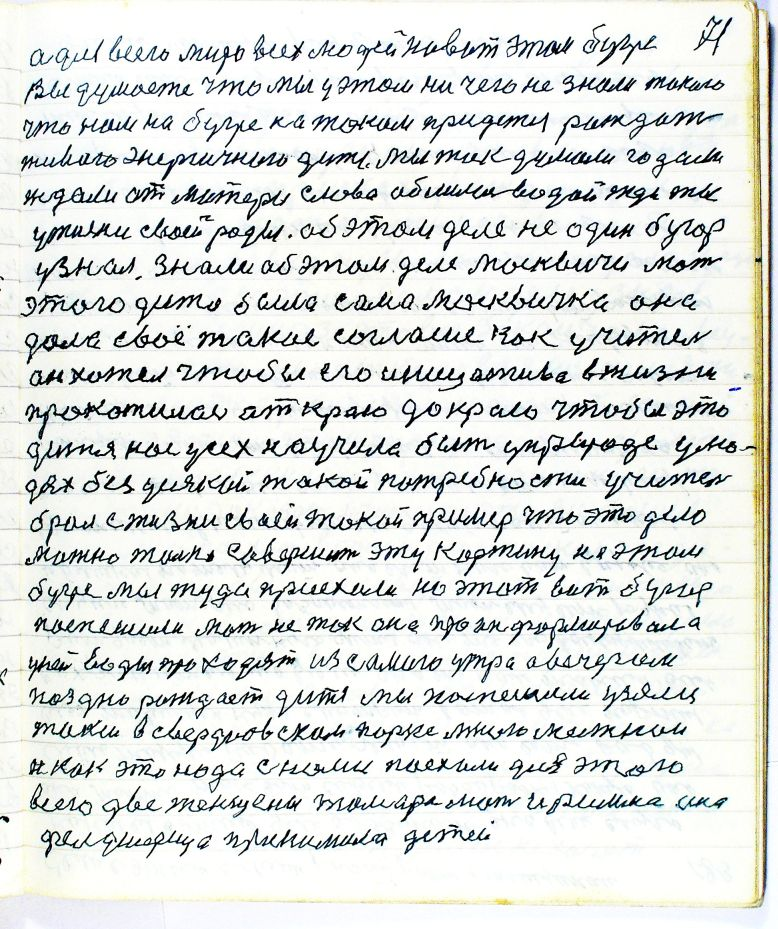 71
а для всего мира всех людей на вот этом бугре
Вы думаете что мы у этом ни чего не знали такого
что нам на бугре на таком придется рождат
живого энергичного дитя. мы так думали годами
ждали от матери слова облила водой жди ты
у жизни своей роды. об этом деле не один бугор
узнал. знали об этом деле москвичи мат
этого дито была сама москвичка она
дала своё такое согласие как учител
он хотел чтобы его инициатива в жизни
прокотилас от краю до краю чтобы это
дитя нас усех научила быт у природе у лю-
дях без усякой такой потребности учител
брал с жизни своей такой пример что это дело
можно толко совершит эту картину на этом
бугре мы туда приехали на этот вот бугор
поспешили мат не так она проинформировала
у ней воды проходят из самого утра а вечером
поздно рождает дитя мы поспешили узяли
такси в свердловском парке мило
и как это нада с нами поехали для этого
всего две женщены тамара мат и римма она
фелдшерица принимала детей